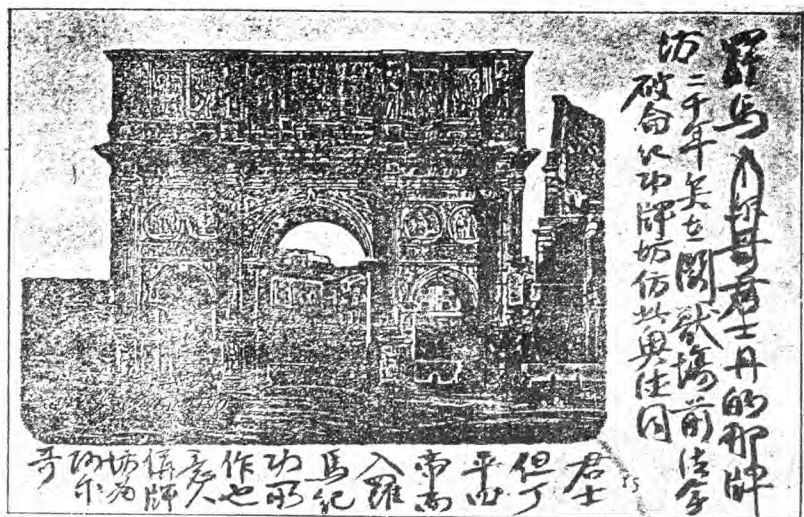 羅馬尔哥君士丹的那牌
坊二千年矣在鬪獸場前法拿
破侖紀功牌坊仿此同
君士
但丁
平四
帝而
入羅
馬紀
功所
作也
意人
稱牌
坊為
阿尔
哥